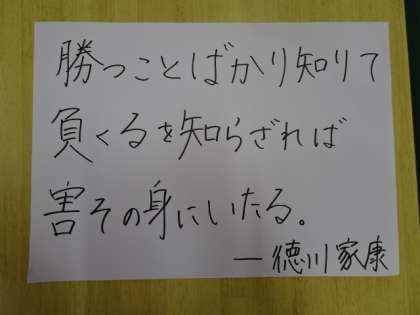 勝つことばかり知りて
負くるを知らざれば
害その身にいたる。
— 徳川家康